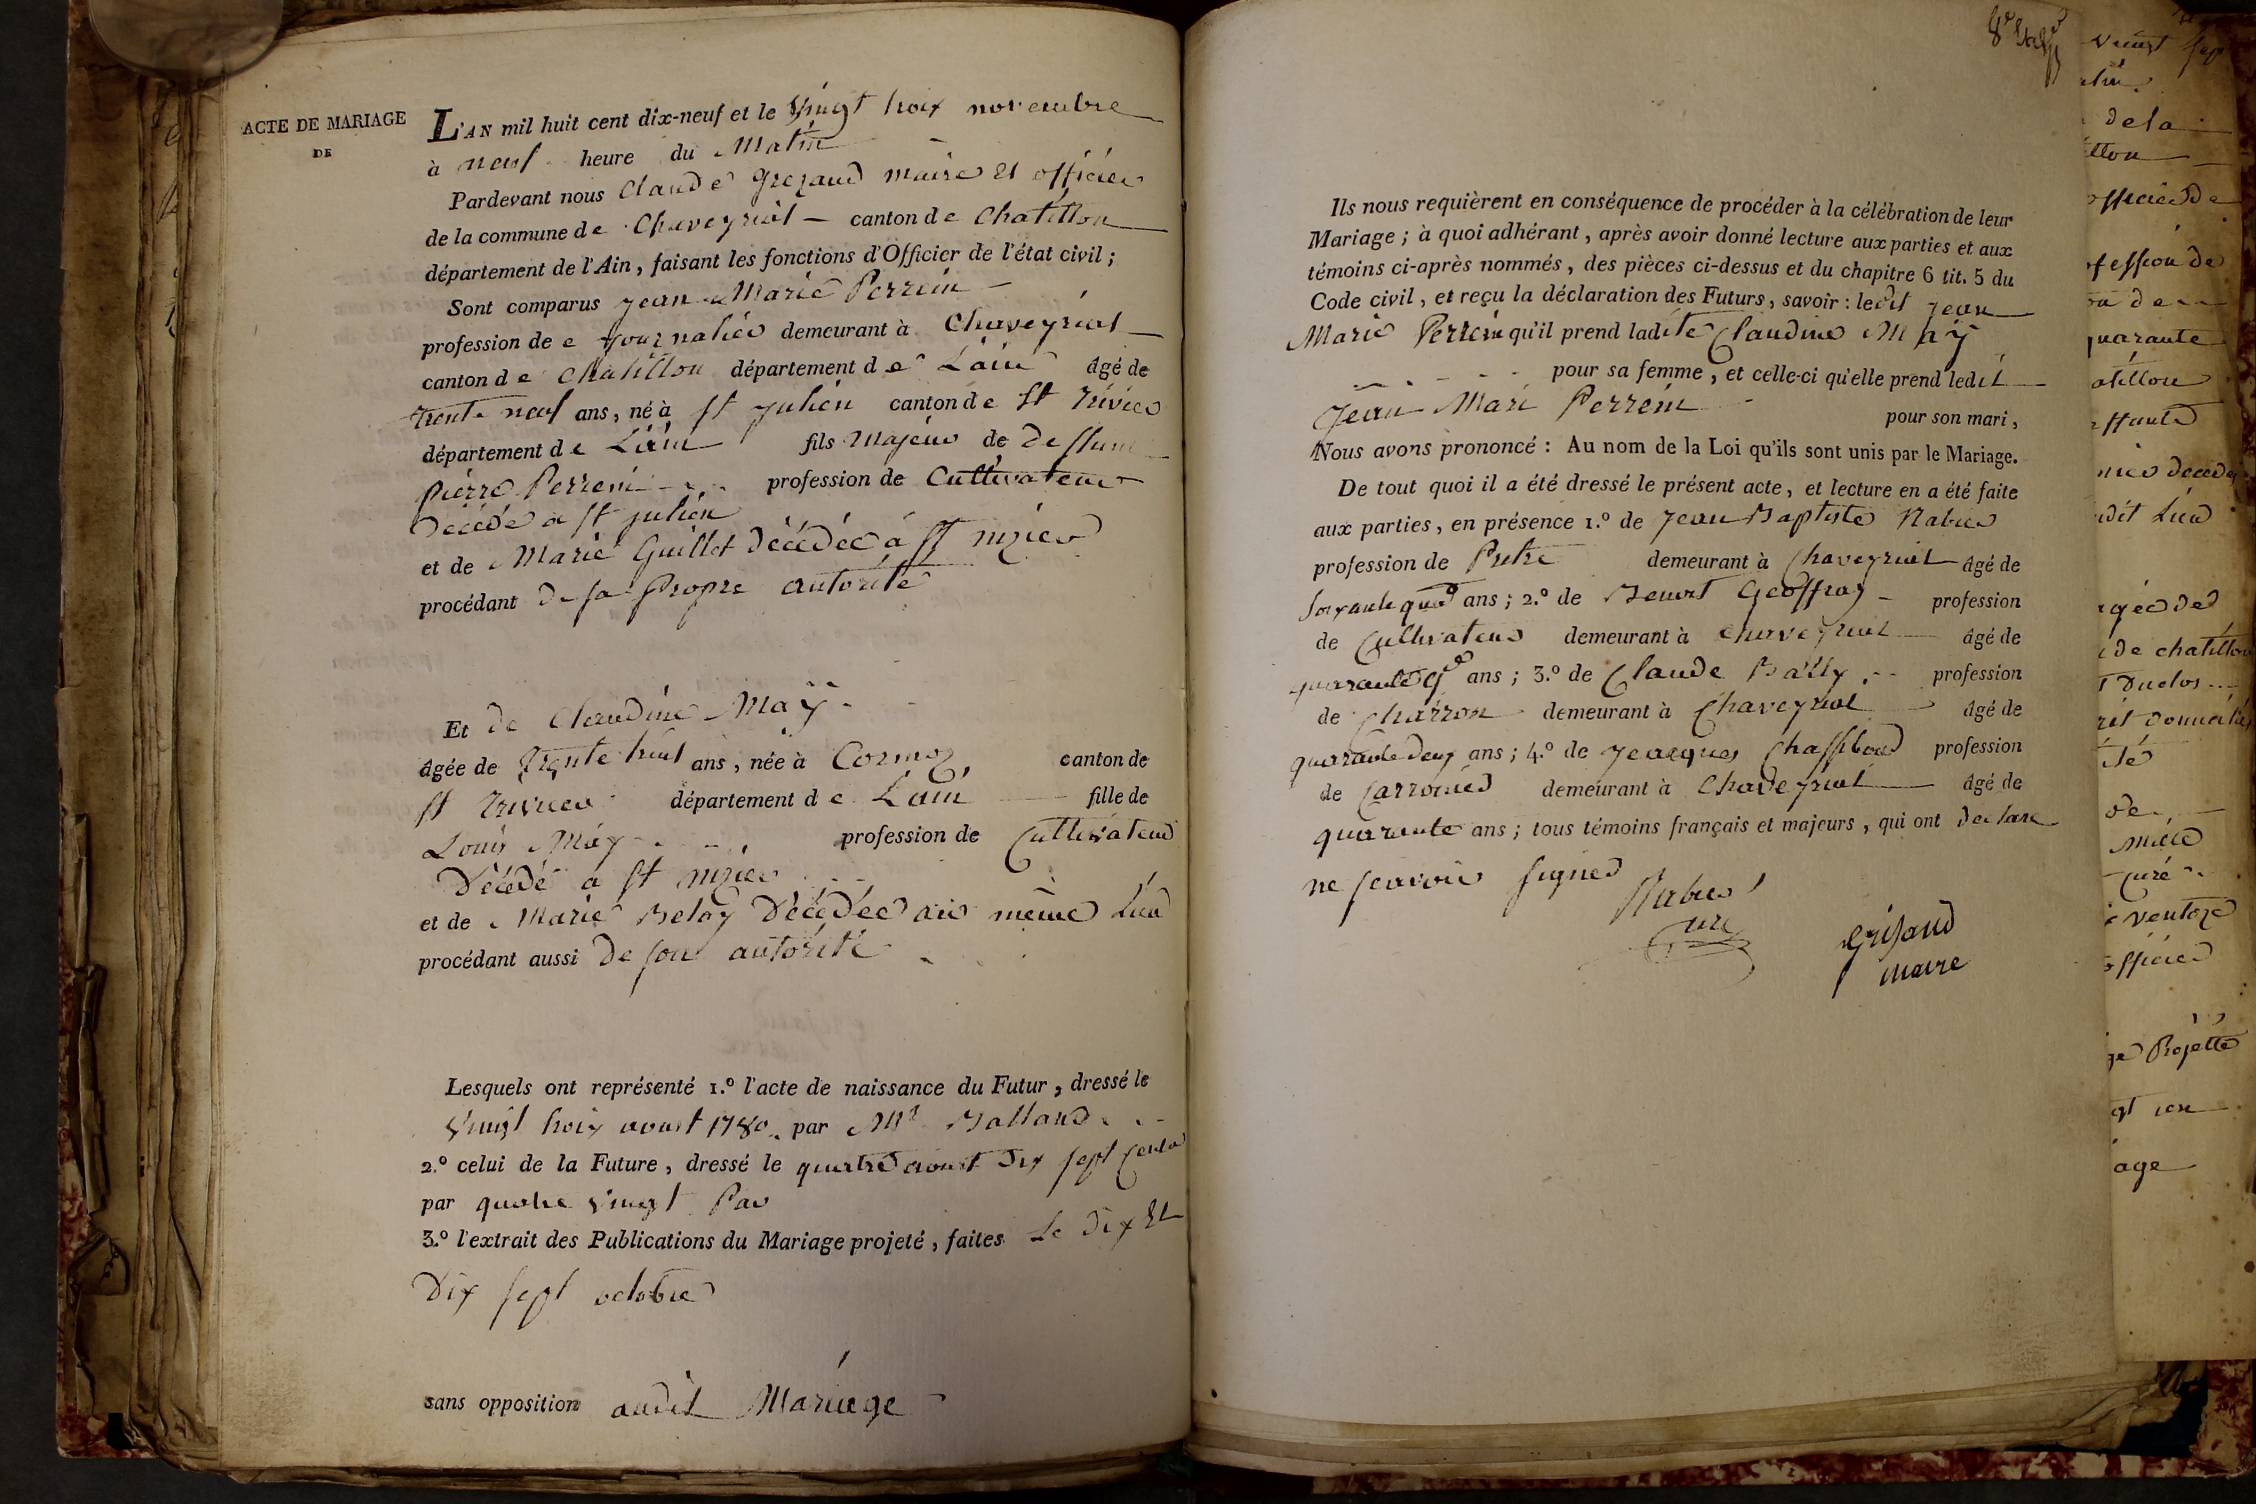 ACTE DE MARIAGE
DE
L'AN mil huit cent dix-neuf et le Vingt trois novembre
à neuf heure du Matin
Pardevant nous Claude Grezaud maire et officier
de la commune de Chaveyriat canton de Chatillon
département de l'Ain, faisant les fonctions d'Officier de l'état civil;
Sont comparus jean Marie Perrein
profession de journalier demeurant à Chaveyriat
canton de Chatillon département de L'ain âgé de
trente neuf ans, né à st julien canton de st trivier
département de L'ain fils Majeur de deffunt
pierre Perrein profession de Cultivateur
Décédé a st julien
et de Marie Guillot décédée á st nizier
procédant de sa Propre autorité
Et de Claudine Maÿ
âgée de trente huit ans, née à Cormoz canton de
st trivier département de L'ain fille de
Louis Maÿ profession de Cultivateur
Décédé a st nizier
et de Marie Belay Décédée au même Lieu
procédant aussi de son autorité
Lesquels ont représenté 1.º l'acte de naissance du Futur, dressé le
vingt trois aoust 1780 par Mr Balland
2.º celui de la Future, dressé le quatre aoust dix sept cents
par quatre vingt Par
3.º l'extrait des Publications du Mariage projeté, faites Le dix et
Dix sept octobre
sans opposition audit Mariage
Ils nous requièrent en conséquence de procéder à la célébration de leur
Mariage; à quoi adhérant, après avoir donné lecture aux parties et aux
témoins ci-après nommés, des pièces ci-dessus et du chapitre 6 tit. 5 du
Code civil, et reçu la déclaration des Futurs, savoir: ledit jean
Marie Perrein qu'il prend ladite Claudine Maÿ
pour sa femme, et celle-ci qu'elle prend ledit
Jean Mari Perrein pour son mari,
Nous avons prononcé: Au nom de la Loi qu'ils sont unis par le Mariage.
De tout quoi il a été dressé le présent acte, et lecture en a été faite
aux parties, en présence 1.º de jean Baptiste Rabuer
profession de Pretre demeurant à Chaveyriat âgé de
soixante ans; 2.º de Benoit Geoffray profession
de Cultivateur demeurant à chaveyriat âgé de
quarante ans; 3.º de Claude Bailly profession
de Charron demeurant à Chaveyriat âgé de
quarante deux ans; 4.º de jeacques Chassiboud profession
de demeurant à Chaveyriat âgé de
quarante ans; tous témoins français et majeurs, qui ont declare
ne scavoir signer
Rabuer
curé
Grisaud
maire
vingt sept
de la
officier de
profession de
quarante
chatillon
décédé
udit Lieu
de chatillon
Duclos
curé
ventoze
officier
Projetté